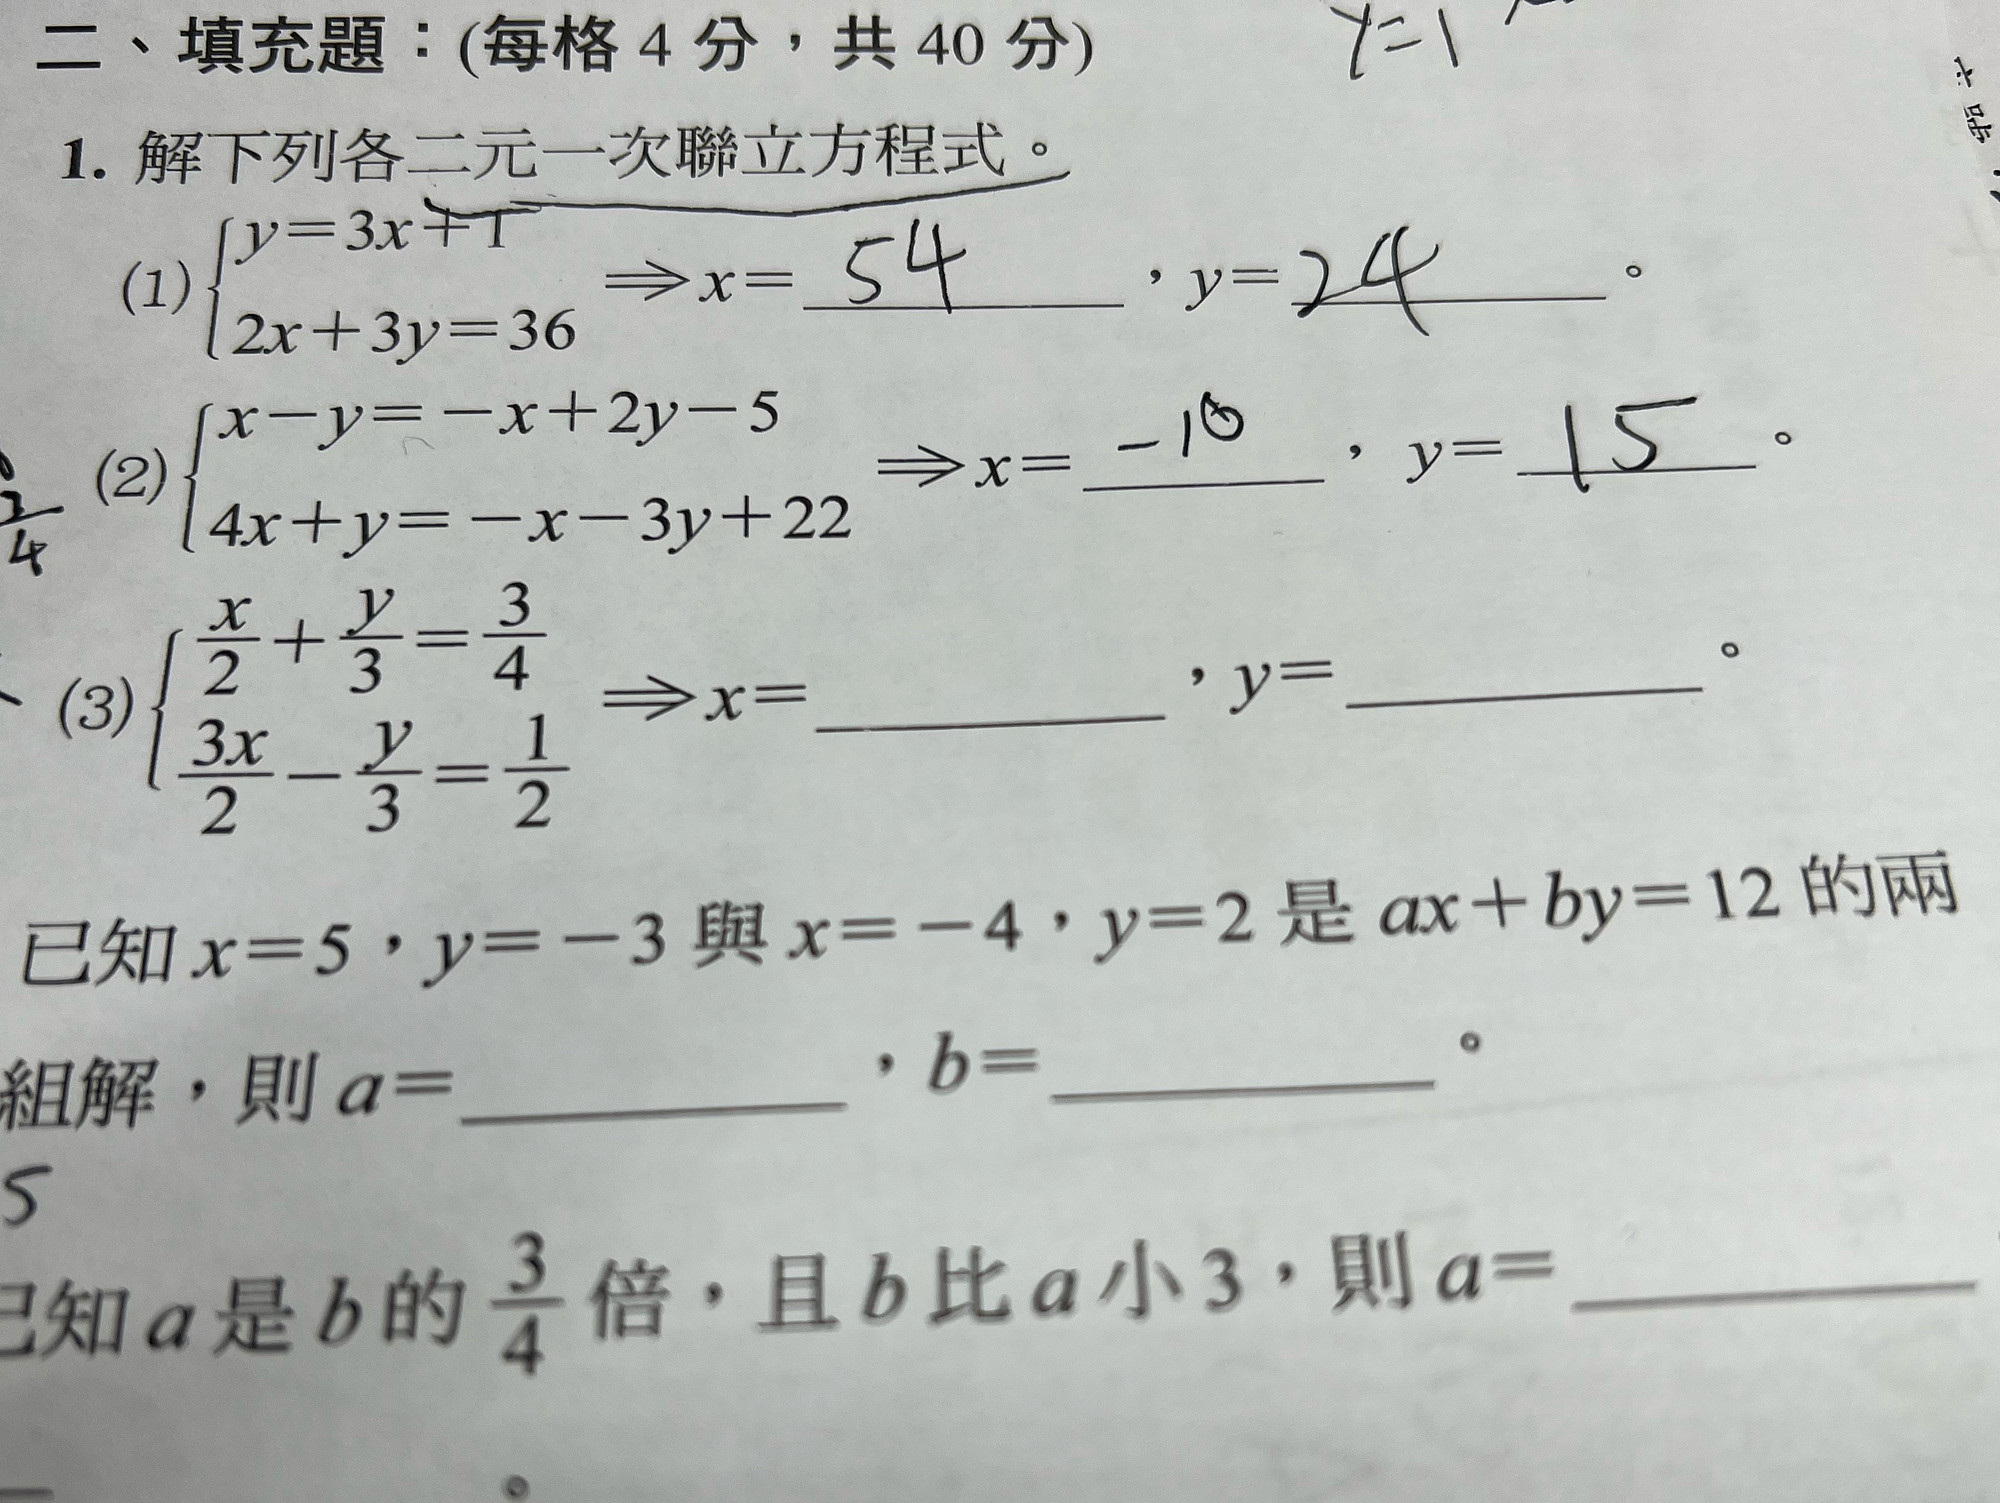 y=1
二、填充題：(每格 4 分，共 40 分)
1. 解下列各二元一次聯立方程式。
(1) { y=3x+1
2x+3y=36 ⇒ x= 54 ，y= 24 。
(2) { x−y=−x+2y−5
4x+y=−x−3y+22 ⇒ x= −10 ，y= 15 。
(3) { x/2+y/3=3/4
3x/2−y/3=1/2 ⇒ x=______，y=______。
已知 x=5，y=−3 與 x=−4，y=2 是 ax+by=12 的兩
組解，則 a=______，b=______。
5
已知 a 是 b 的 3/4 倍，且 b 比 a 小 3，則 a=______
。